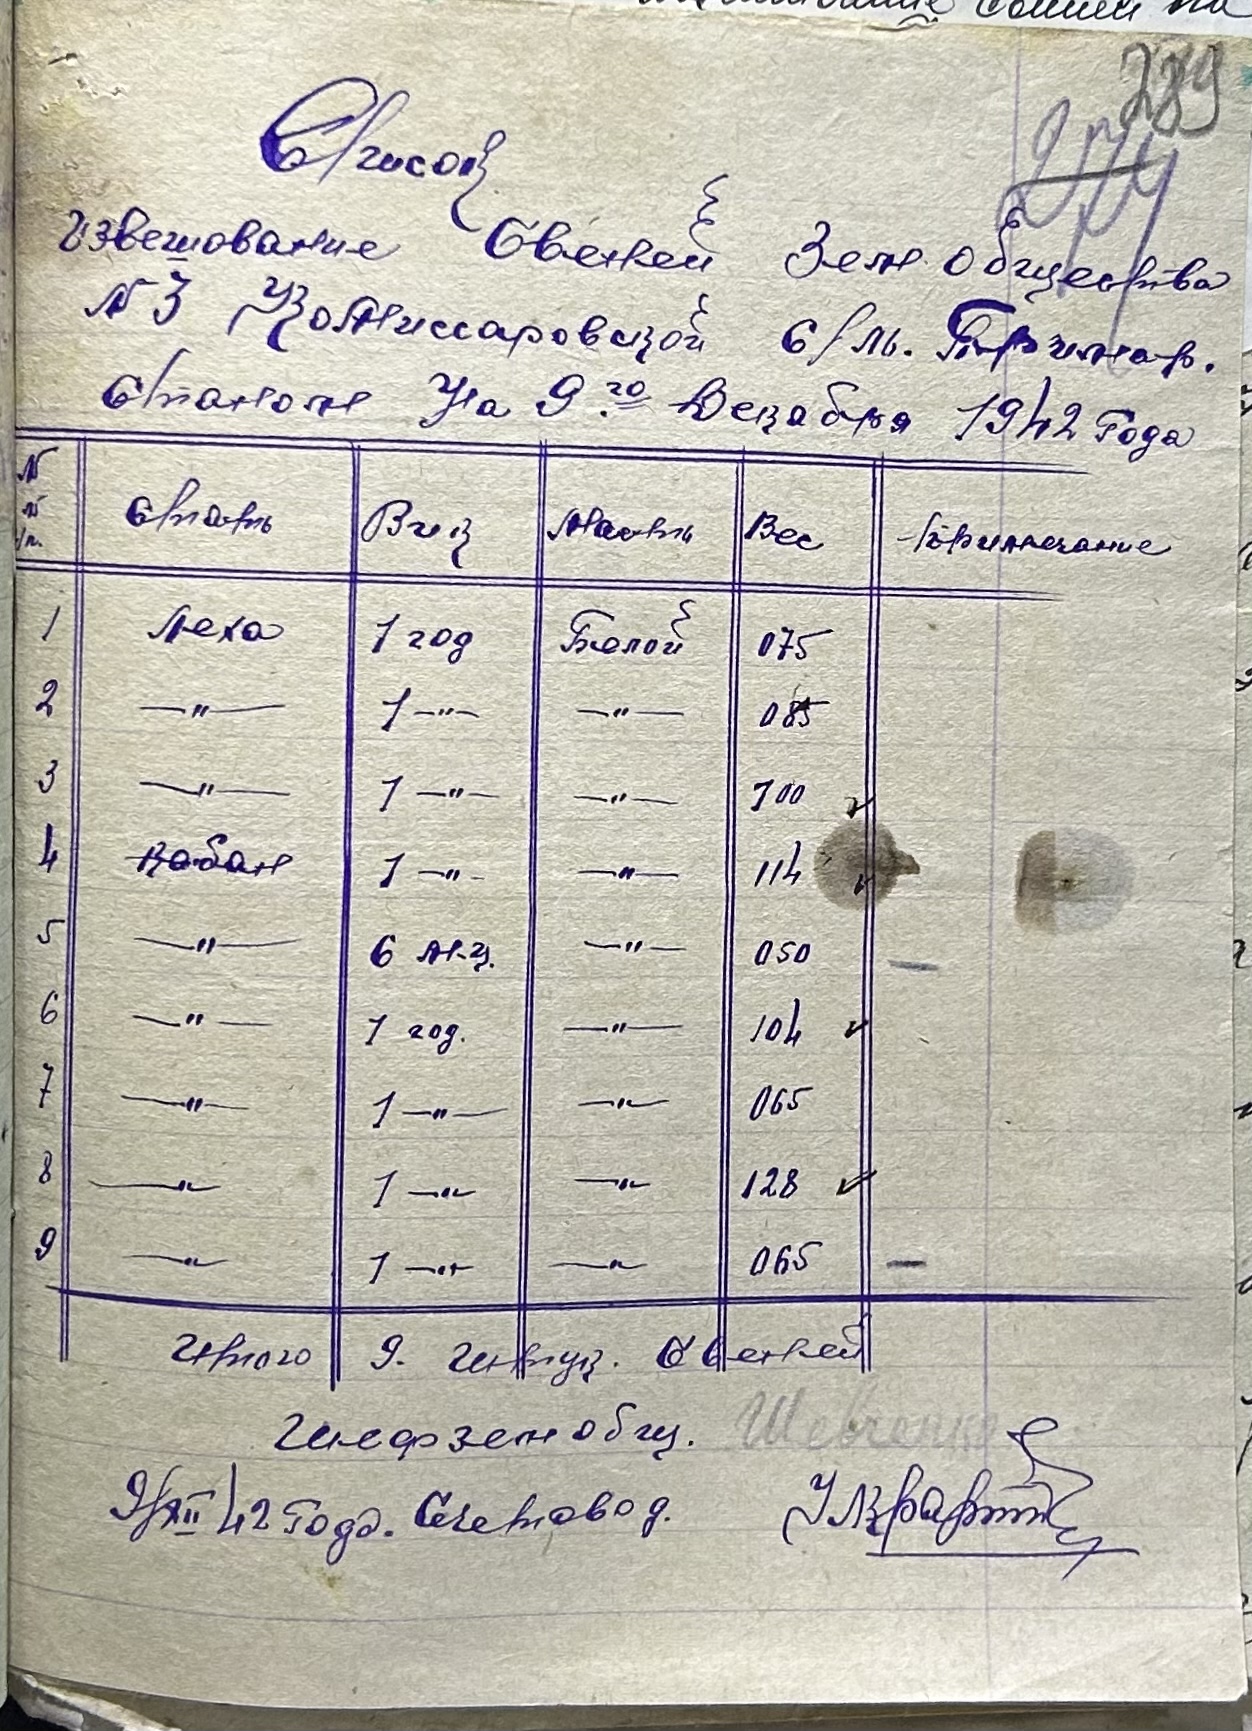 289
274
Список
извешование Свеней Зем. общества
№ 3 Комиссаровской с/ль.
Станом На 9го Декабря 1942 Года
№ № п/п. Стать Вик Масть Вес Примечание
1 Леха 1 год Белой 075
2 —"— 1 —"— —"— 085
3 —"— 1 —"— —"— 100 ✓
4 Кабан 1 —"— —"— 114 ✓
5 —"— 6 м-ц. —"— 050 —
6 —"— 1 год. —"— 104 ✓
7 —"— 1 —"— —"— 065
8 —"— 1 —"— —"— 128 ✓
9 —"— 1 —"— —"— 065 —
итого 9. штук. Свеней
Шефземобщ. Шевченко
9/XII 42 Года. Счетовод.